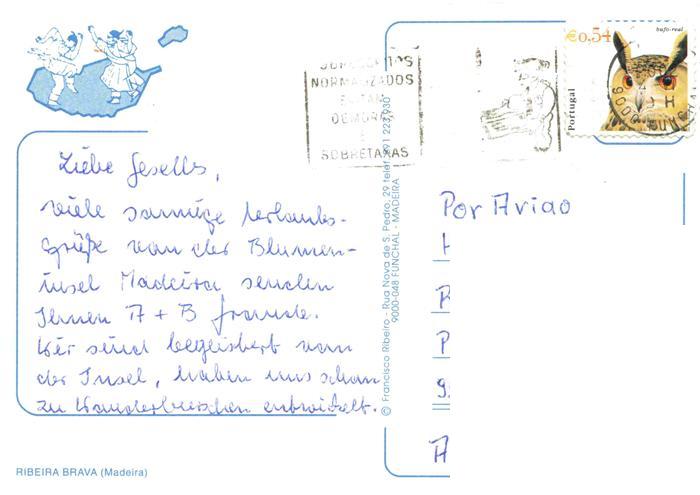 €0,54
bufo-real
Portugal
NORMALIZADOS
EVITAM
DEMORAS
E
SOBRETAXAS
9000 FUNCHAL
Liebe Gesells,
viele sonnige Urlaubs-
grüße von der Blumen-
insel Madeira senden
Ihnen A + B
Wir sind begeistert von
der Insel, haben uns schon
zu Wanderburschen entwickelt.
© Francisco Ribeiro - Rua Nova de S. Pedro, 29 telef. 291 223 930
9000-048 FUNCHAL - MADEIRA
Por Aviao
RIBEIRA BRAVA (Madeira)